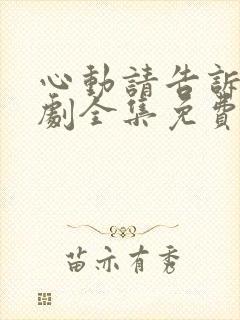 心動請告訴
劇全集免費
苗亦有秀